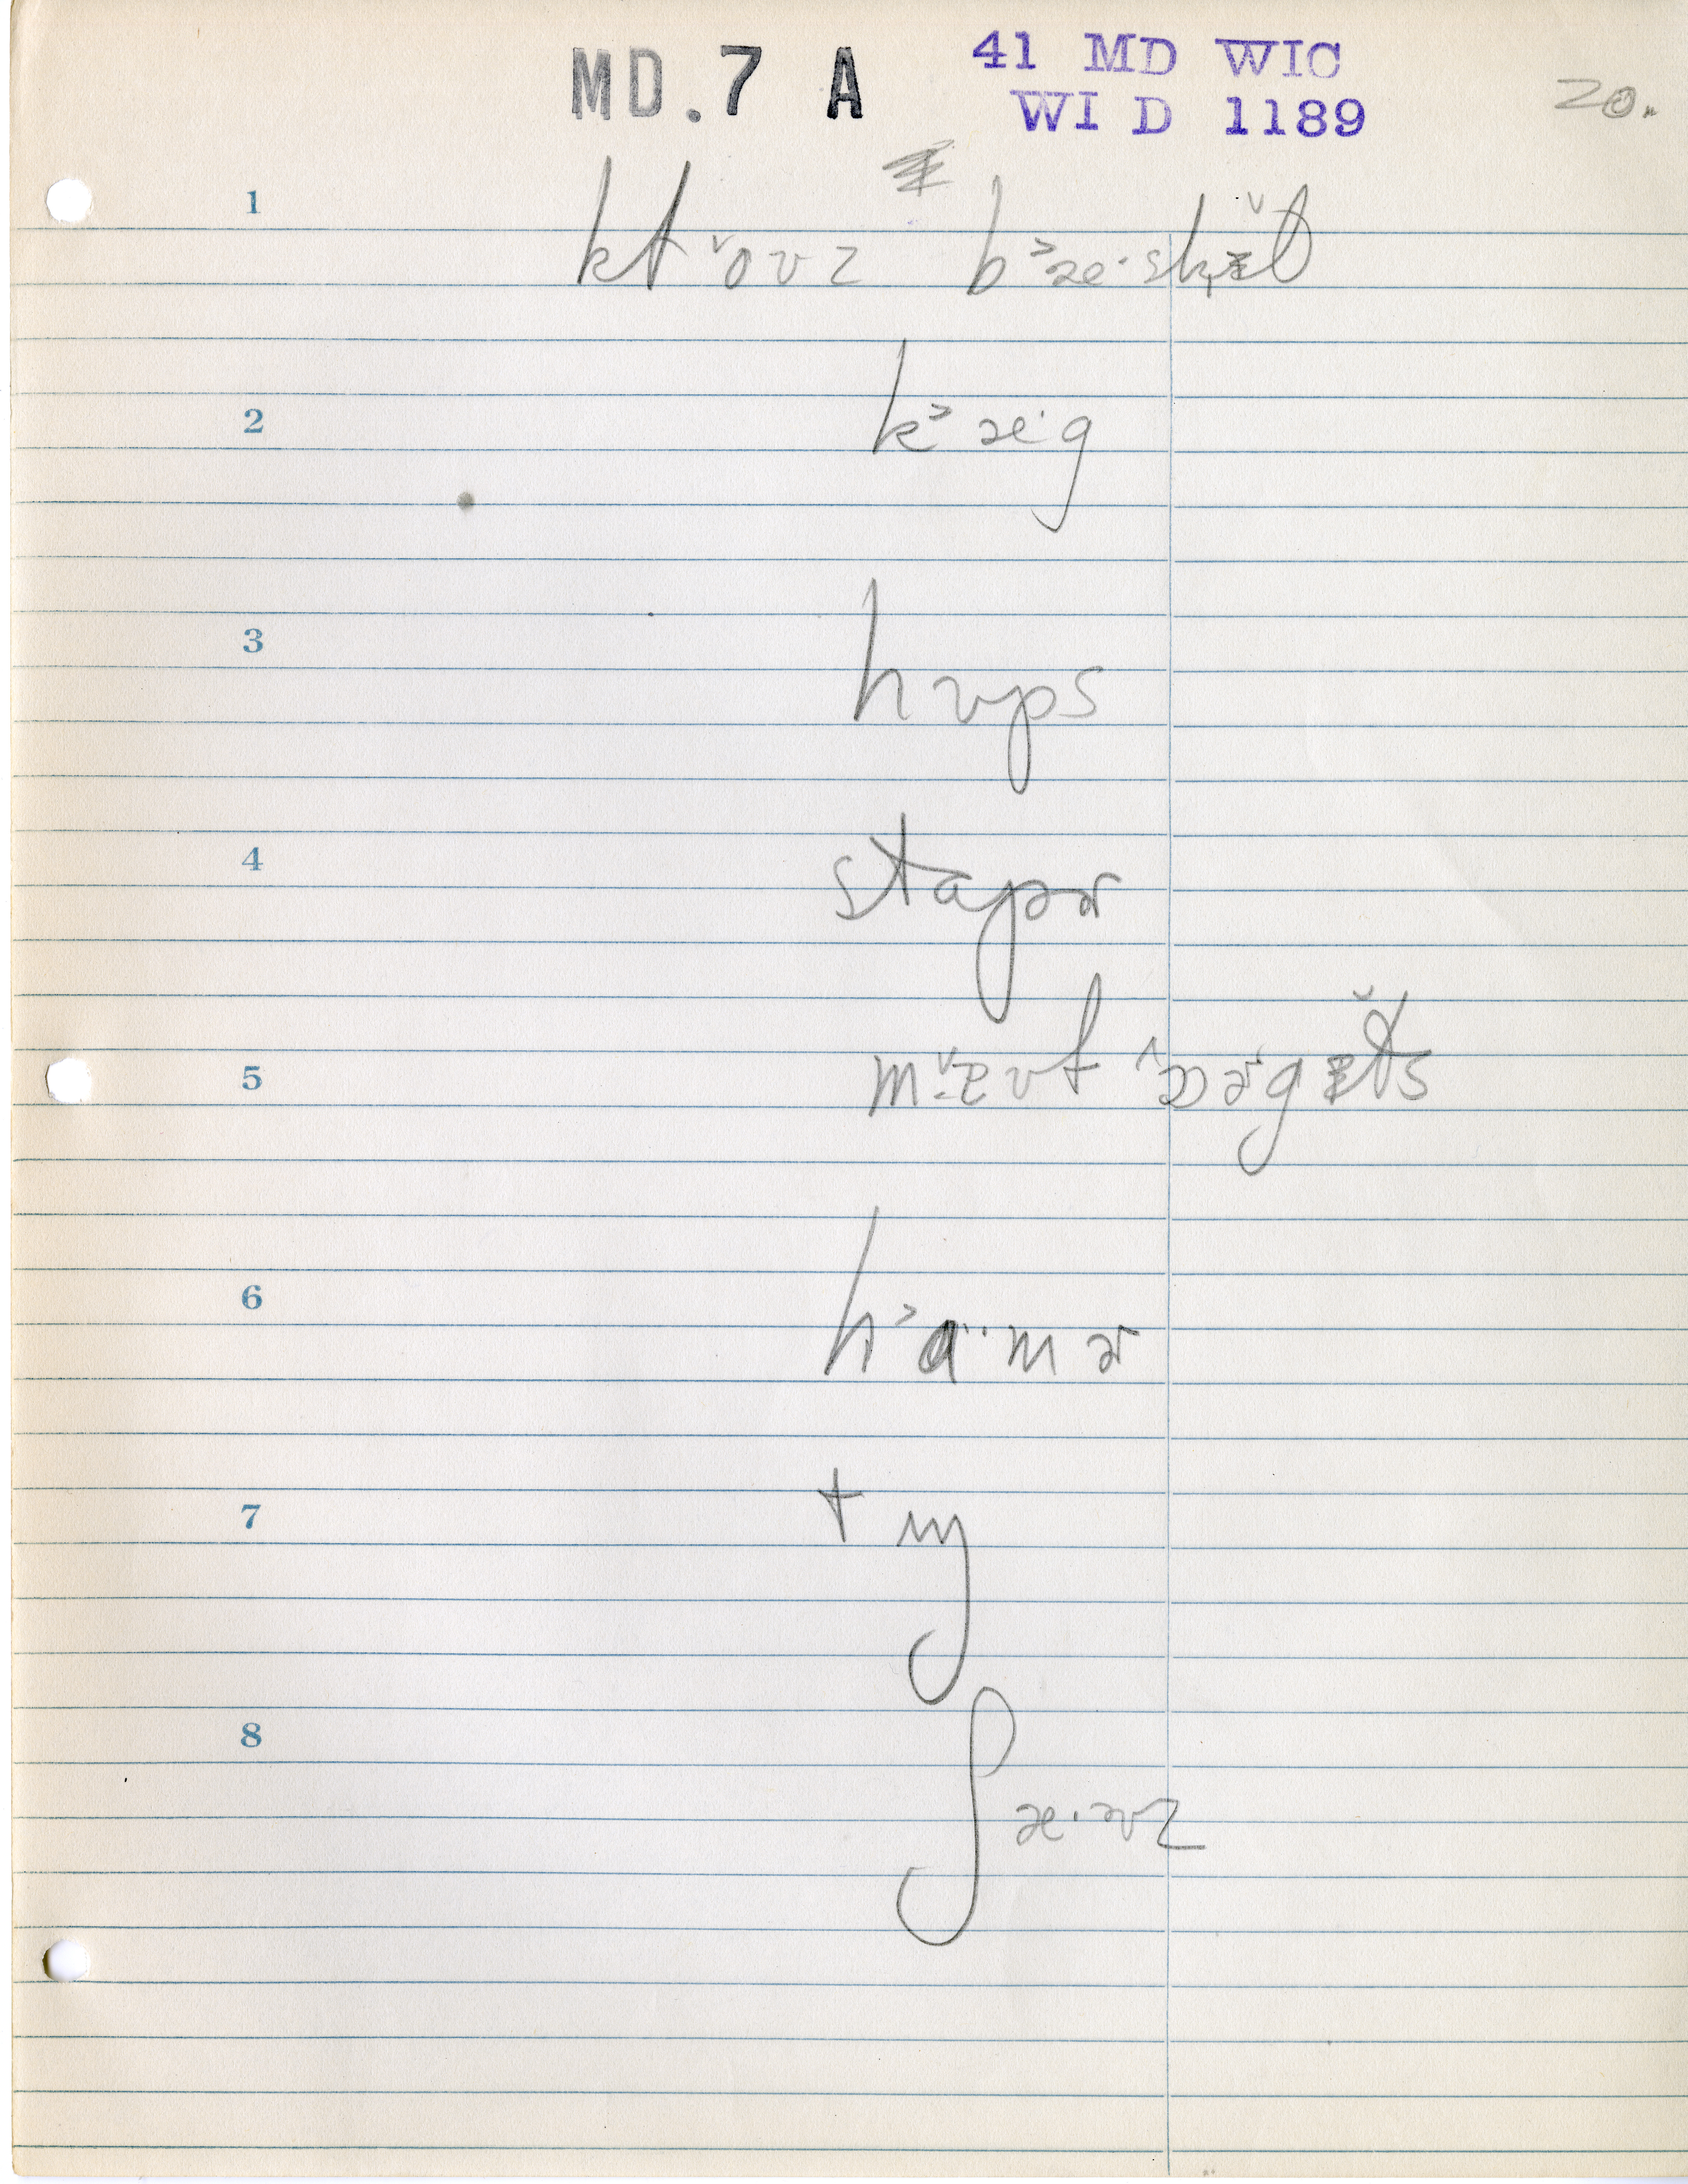 MD.7 A 41 MD WIC
WI D 1189
20.
1
kt˅oʊz b˃æ·skɨt̬
2
k˃æ·g
3
hʊps
4
stapɚ
5
ɔɚg
6
h˃ɑ·mɚ
7
tɪŋ
8
ʃæ·əvz